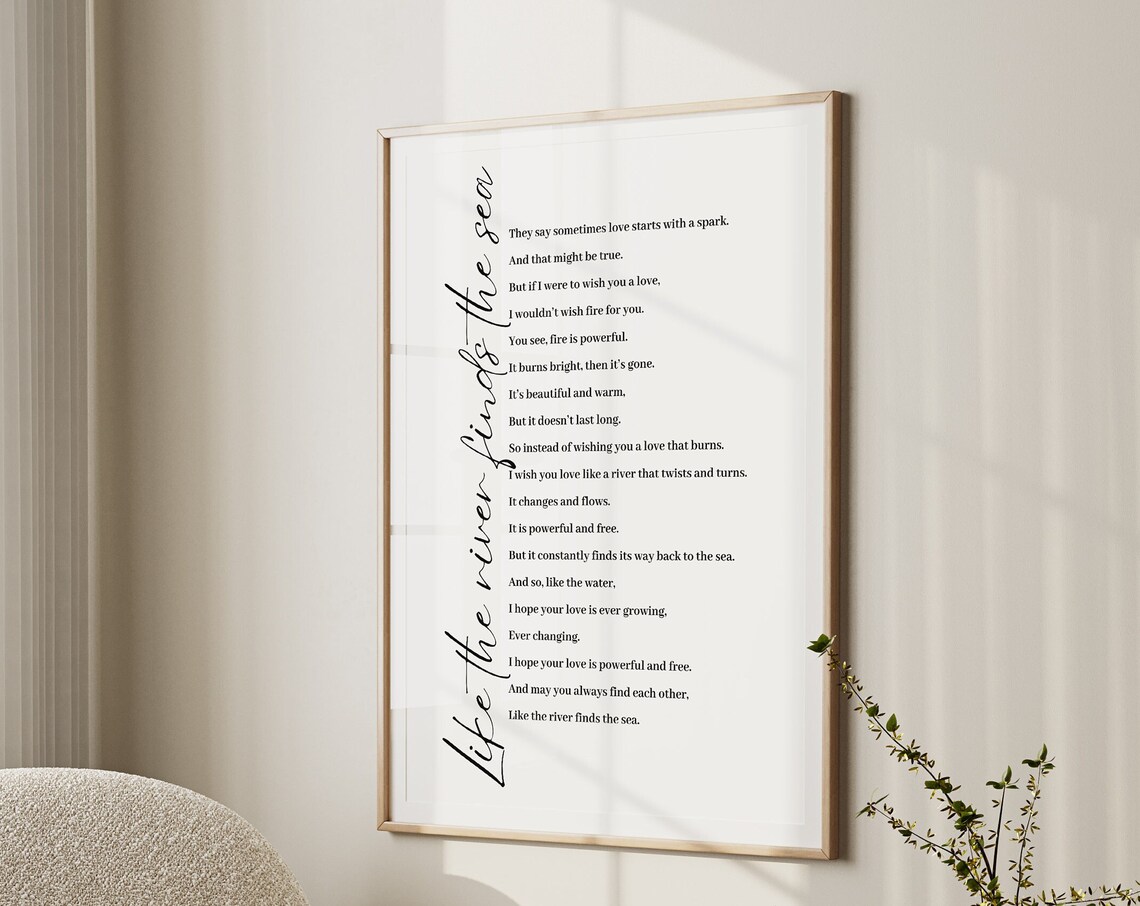 Like the river finds the sea
They say sometimes love starts with a spark.
And that might be true.
But if I were to wish you a love,
I wouldn't wish fire for you.
You see, fire is powerful.
It burns bright, then it's gone.
It's beautiful and warm,
But it doesn't last long.
So instead of wishing you a love that burns.
I wish you love like a river that twists and turns.
It changes and flows.
It is powerful and free.
But it constantly finds its way back to the sea.
And so, like the water,
I hope your love is ever growing,
Ever changing.
I hope your love is powerful and free.
And may you always find each other,
Like the river finds the sea.